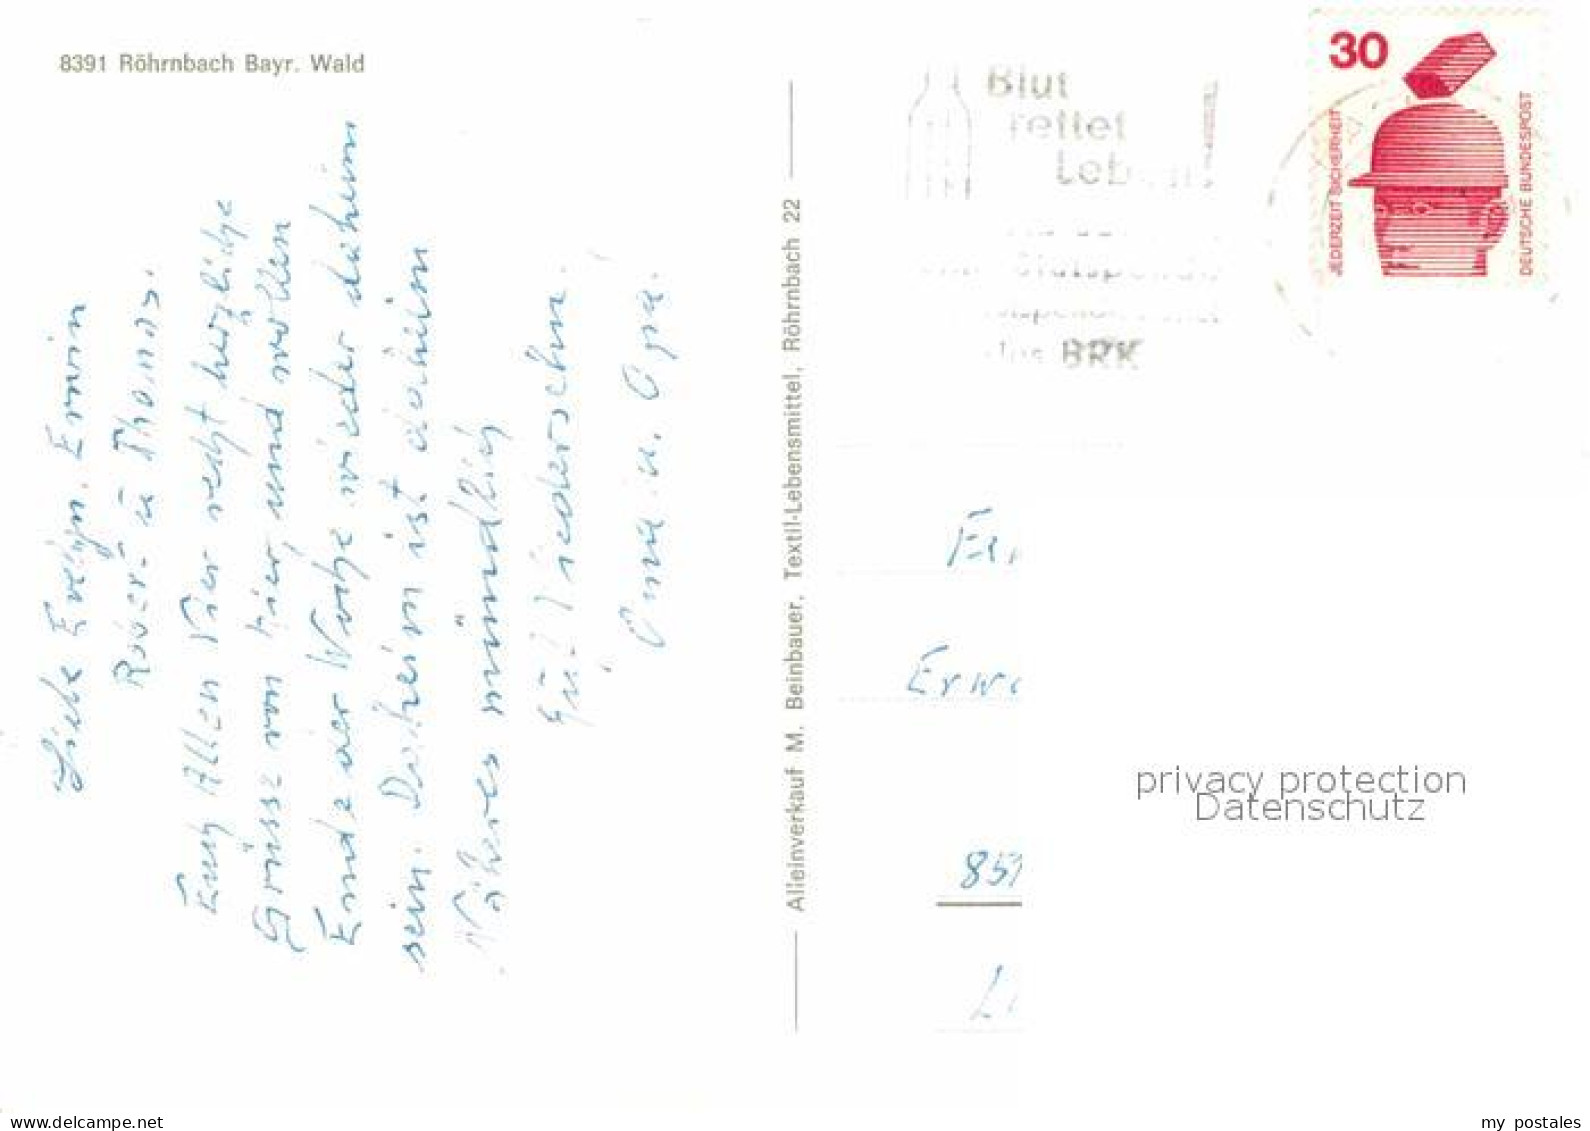 8391 Röhrnbach Bayr. Wald
Liebe Evelyn, Erwin
Robert u Thomas.
Euch Allen Vier recht herzliche
Grüsse von hier, und wollen
Ende der Woche wieder daheim
sein. Daheim ist daheim
Näheres mündlich
Auf Wiedersehn.
Oma u. Opa.
Alleinverkauf M. Beinbauer, Textil-Lebensmittel, Röhrnbach 22
Blut
rettet
Leben
BRK
30
JEDERZEIT SICHERHEIT
DEUTSCHE BUNDESPOST
privacy protection
Datenschutz
www.delcampe.net
my_postales